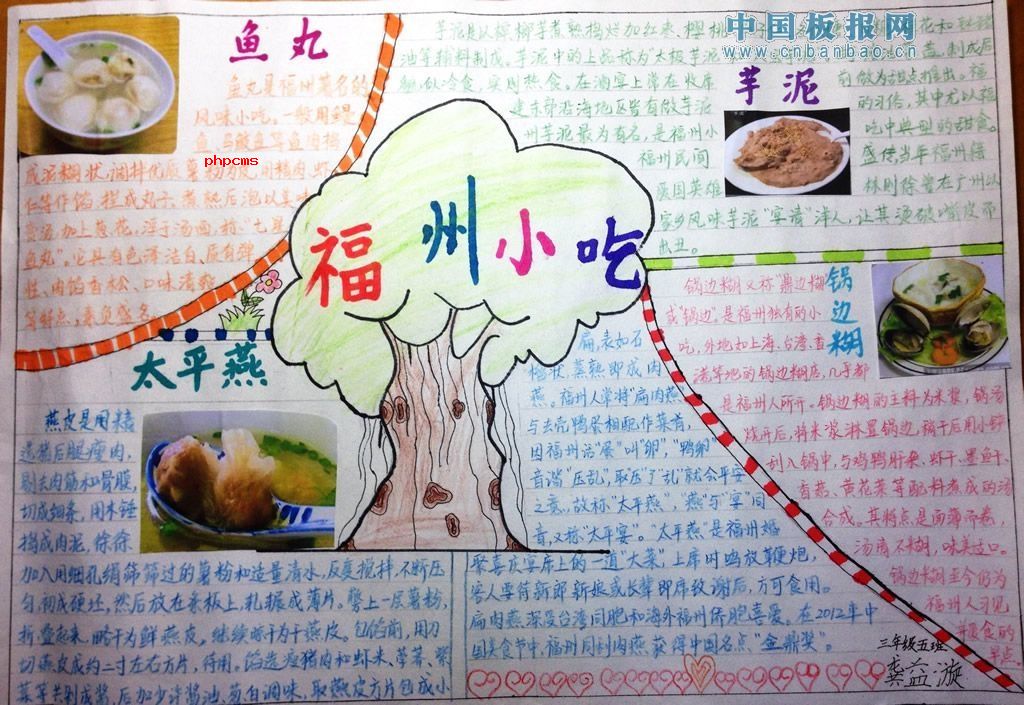 中国板报网
www.cnbanbao.cn
phpcms
福州小吃
鱼丸
鱼丸是福州著名的
风味小吃。一般用鳗
鱼、马鲛鱼等鱼肉捣
成泥糊状,调拌优质薯粉为皮,用精肉、虾
仁等作馅,搓成丸子,煮熟后泡以美味
高汤,加上葱花,浮于汤面,称“七星
鱼丸”。它具有色泽洁白、质有弹
性、肉馅香松、口味清爽
等特点,素负盛名。
芋泥
芋泥是以槟榔芋煮熟捣烂加红枣、樱桃
油等辅料制成。芋泥中的上品称为“太极芋泥
制成后
貌似冷食,实则热食。在酒宴上常在收席
前做为甜点推出。福
建东旁沿海地区皆有做芋泥
的习俗,其中尤以福
州芋泥最为有名,是福州小
吃中典型的甜食。
福州民间
盛传当年福州籍
爱国英雄
林则徐曾在广州以
家乡风味芋泥“宴请”洋人,让其烫破嘴皮而
出丑。
锅边糊
锅边糊又称“鼎边糊”
或“锅边”。是福州独有的小
吃,外地如上海、台湾、香
港等地的锅边糊店,几乎都
是福州人所开。锅边糊的主料为米浆,锅汤
烧开后,将米浆淋置锅边,稍干后用小铲
刮入锅中,与鸡鸭肝杂、虾干、墨鱼干、
香菇、黄花菜等配料煮成的汤
合成。其特点是面薄而卷,
汤清不糊,味美适口。
锅边糊至今仍为
福州人习见
并爱食的
早点。
太平燕
燕皮是用精
选猪后腿瘦肉,
剔去肉筋和骨膜,
切成细条,用木锤
捣成肉泥,徐徐
加入用细孔绢筛筛过的薯粉和适量清水,反复搅拌,不断压
匀,初成硬坯,然后放在条板上,轧辗成薄片。臂上一层薯粉,
折叠起来,晾干为鲜燕皮。继续晾干为干燕皮。包馅前,用刀
切燕皮成约二寸左右方片,待用。馅选瘦猪肉和虾米、荸荠、紫
菜等共剁成酱,后加少许酱油、葱白调味,取燕皮方片包成小
扁,表如石
榴状,蒸熟即成肉
燕。福州人常将“扁肉燕”
与去壳鸭蛋相配作菜肴,
因福州话“蛋”叫“卵”,“鸭卵”
音谐“压乱”,取压了“乱”就会平安
之意,故称“太平燕”,“燕”与“宴”同
音,又称“太平宴”。“太平燕”是福州婚
聚喜庆宴席上的一道“大菜”,上席时鸣放鞭炮,
客人要待新郎新娘或长辈即席致谢后,方可食用。
扁肉燕深受台湾同胞和海外福州侨胞喜爱。在2012年中
国美食节中,福州同利肉燕获得中国名点“金鼎奖”。
三年级五班
龚益漩